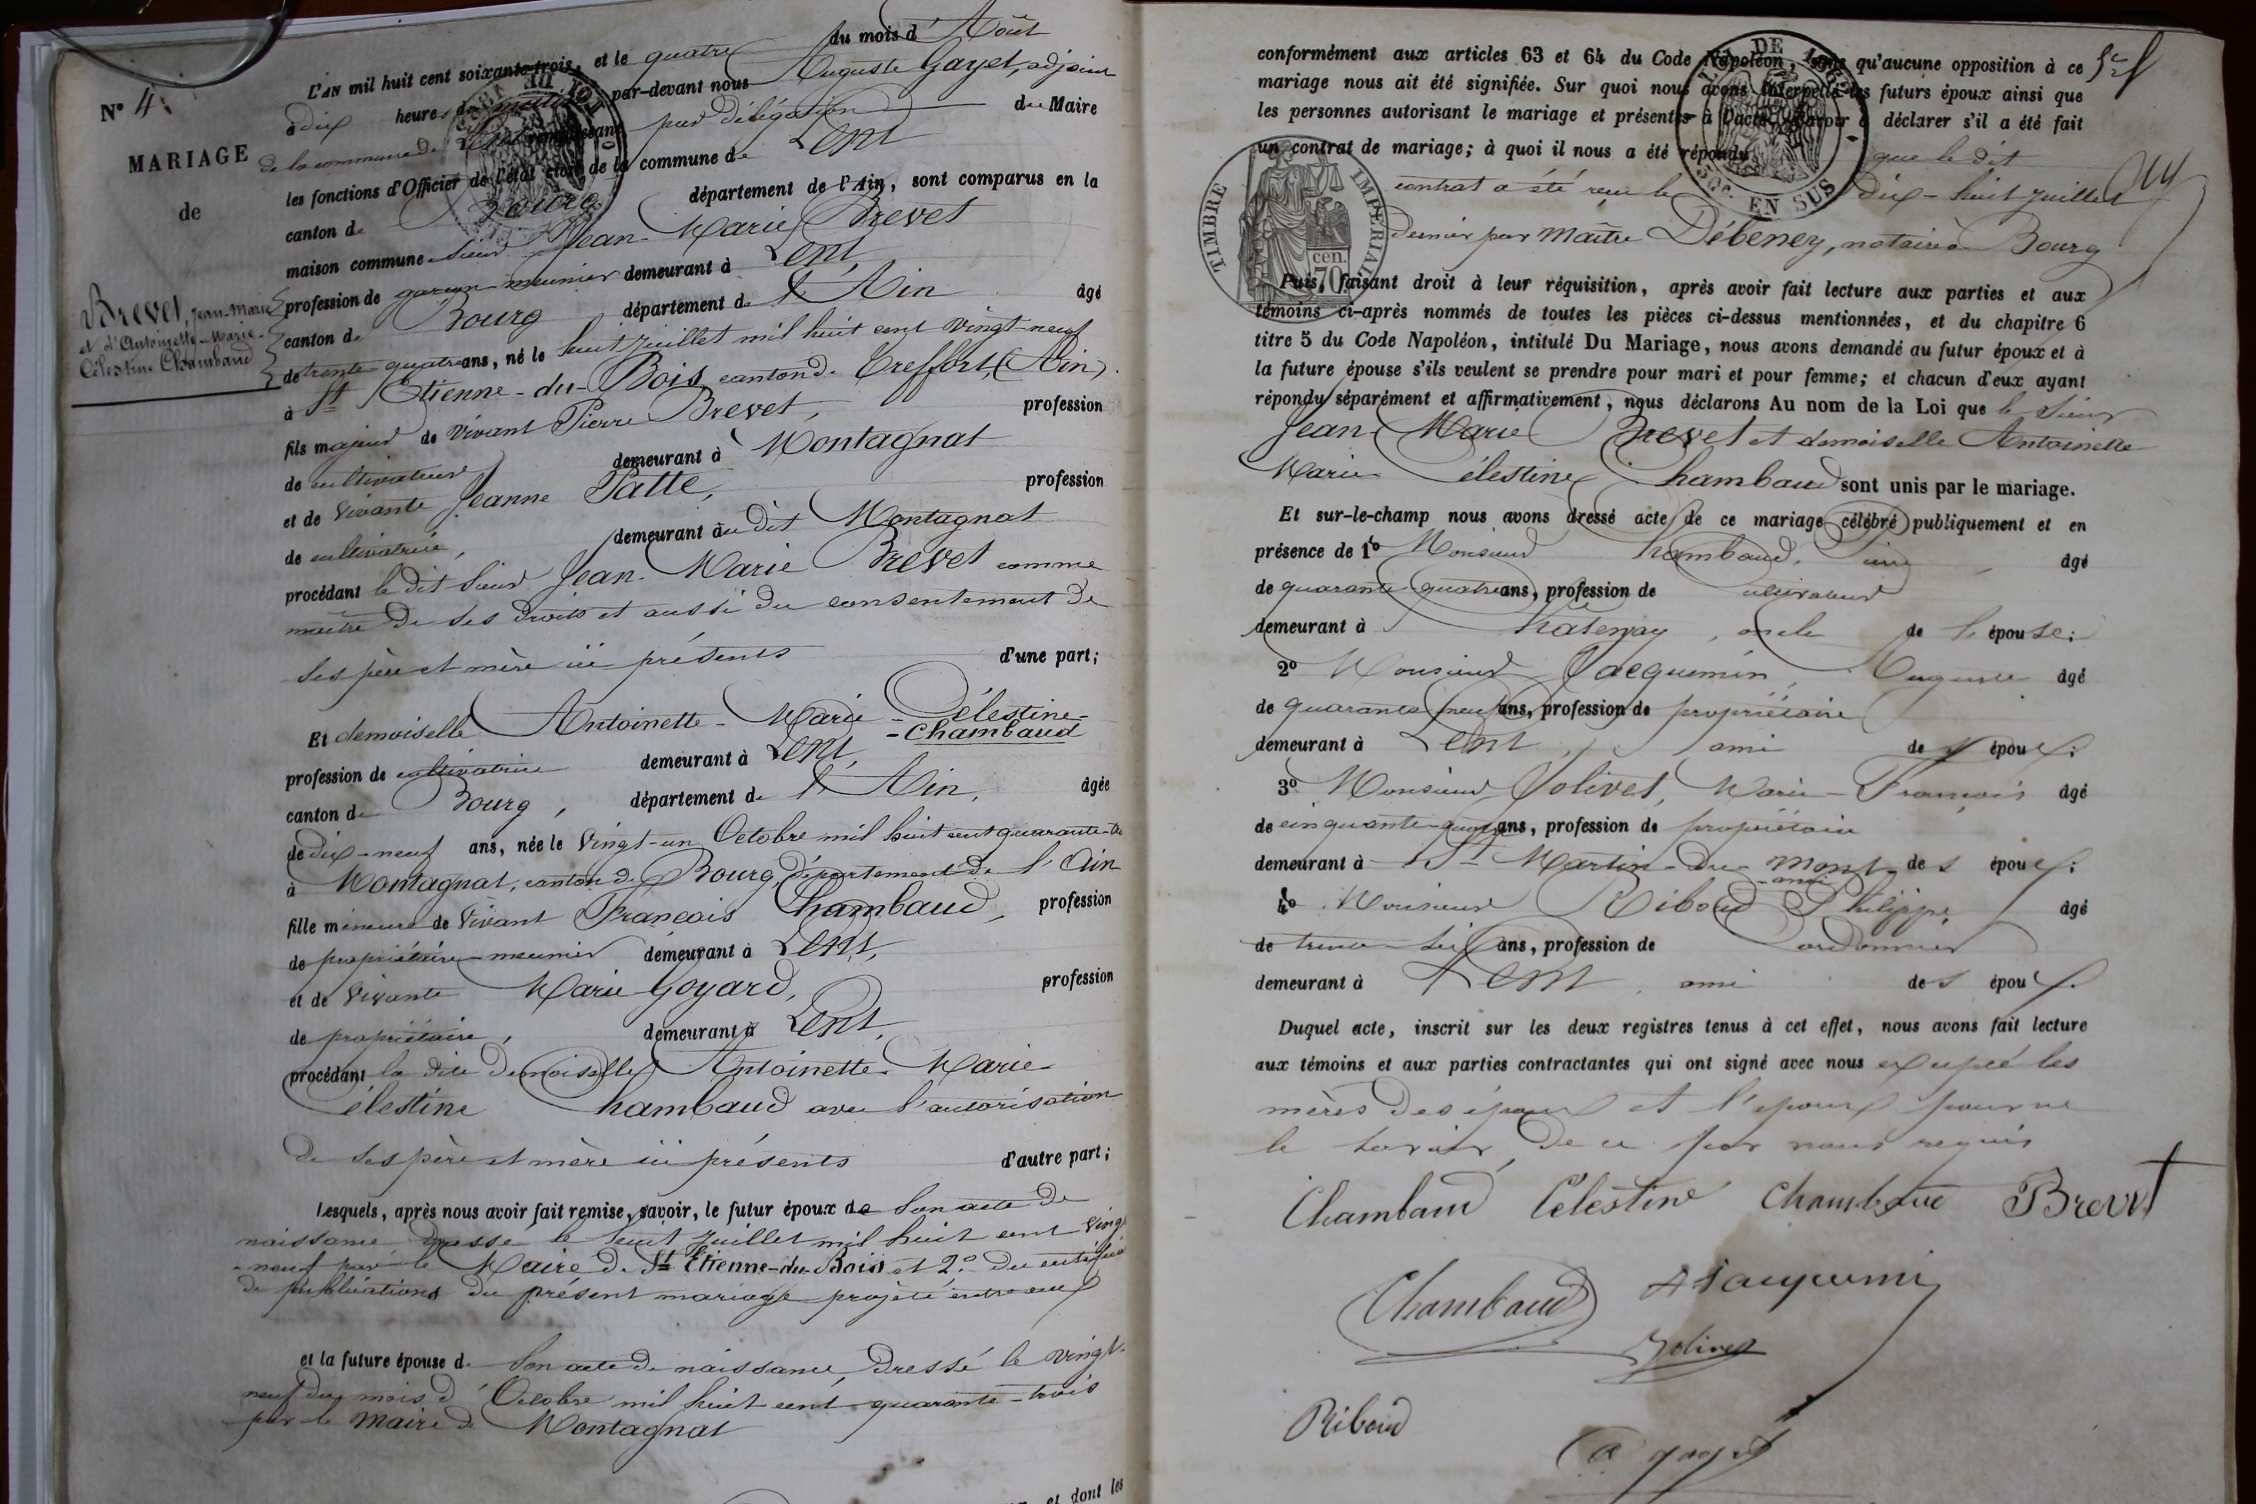 N° 4
MARIAGE
de
Brevet, Jean-Marie
et d'Antoinette-Marie-
Célestine Chambaud
L'AN mil huit cent soixante-trois, et le quatre du mois d'Août
à dix heures du matin par-devant nous Auguste Gayet, adjoint
du Maire
de la commune de Lent remplissant par délégation
les fonctions d'Officier de l'état civil de la commune de Lent
canton de Bourg département de l'Ain, sont comparus en la
maison commune sieur Jean-Marie Brevet
profession de garçon meunier demeurant à Lent,
canton de Bourg département de l'Ain âgé
de trente quatre ans, né le huit juillet mil huit cent vingt-neuf
à St Etienne-du-Bois canton de Treffort, (Ain).
fils majeur de vivant Pierre Brevet, profession
de cultivateur demeurant à Montagnat
et de vivante Jeanne Patte, profession
de cultivatrice, demeurant au dit Montagnat
procédant le dit sieur Jean-Marie Brevet comme
maître de ses droits et aussi du consentement de
ses père et mère ici présents d'une part;
Et demoiselle Antoinette-Marie-Célestine-
-Chambaud
profession de cultivatrice demeurant à Lent,
canton de Bourg, département de l'Ain, âgée
de dix-neuf ans, née le vingt-un Octobre mil huit cent quarante-
à Montagnat, canton de Bourg, département de l'Ain
fille mineure de vivant François Chambaud, profession
de propriétaire-meunier demeurant à Lent,
et de vivante Marie Goyard, profession
de propriétaire, demeurant à Lent,
procédant la dite Demoiselle Antoinette-Marie-
Célestine Chambaud avec l'autorisation
de ses père et mère ici présents d'autre part;
Lesquels, après nous avoir fait remise, savoir, le futur époux de son acte de
naissance dressé le huit juillet mil huit cent vingt
-neuf par le Maire de St Etienne-du-Bois et 2° du certificat
de publications du présent mariage projeté entre eux
et la future épouse de son acte de naissance, dressé le vingt-
neuf du mois d'Octobre mil huit cent quarante-trois
par le Maire de Montagnat
et dont les
conformément aux articles 63 et 64 du Code Napoléon, sans qu'aucune opposition à ce
mariage nous ait été signifiée. Sur quoi nous avons interpellé les futurs époux ainsi que
les personnes autorisant le mariage et présentes à l'acte, d'avoir à déclarer s'il a été fait
un contrat de mariage; à quoi il nous a été répondu que le dit
contrat a été reçu le dix-huit juillet
dernier par Maître Débeney, notaire à Bourg
TIMBRE IMPÉRIAL
70 cen.
DE 1862
50c EN SUS
Puis, faisant droit à leur réquisition, après avoir fait lecture aux parties et aux
témoins ci-après nommés de toutes les pièces ci-dessus mentionnées, et du chapitre 6
titre 5 du Code Napoléon, intitulé Du Mariage, nous avons demandé au futur époux et à
la future épouse s'ils veulent se prendre pour mari et pour femme; et chacun d'eux ayant
répondu séparément et affirmativement, nous déclarons Au nom de la Loi que le sieur
Jean-Marie Brevet et demoiselle Antoinette
Marie Célestine Chambaud sont unis par le mariage.
Et sur-le-champ nous avons dressé acte de ce mariage célébré publiquement et en
présence de 1° Monsieur Chambaud, âgé
de quarante quatre ans, profession de cultivateur
demeurant à Chatenay, oncle de l'épouse;
2° Monsieur Jacquemin, Auguste âgé
de quarante neuf ans, profession de propriétaire
demeurant à Lent, ami de s époux;
3° Monsieur Jolivet, Marie-François âgé
de cinquante ans, profession de propriétaire
demeurant à St Martin-du-Mont de s époux;
-ami
4° Monsieur Riboud Philippe, âgé
de trente six ans, profession de Cordonnier
demeurant à Lent, ami de s époux.
Duquel acte, inscrit sur les deux registres tenus à cet effet, nous avons fait lecture
aux témoins et aux parties contractantes qui ont signé avec nous excepté les
mères des époux et l'époux pour ne
le savoir, de ce par nous requis
Chambaud Célestine Chambaud Brevet
Chambaud A Jacquemin
Jolivet
Riboud
A Gayet